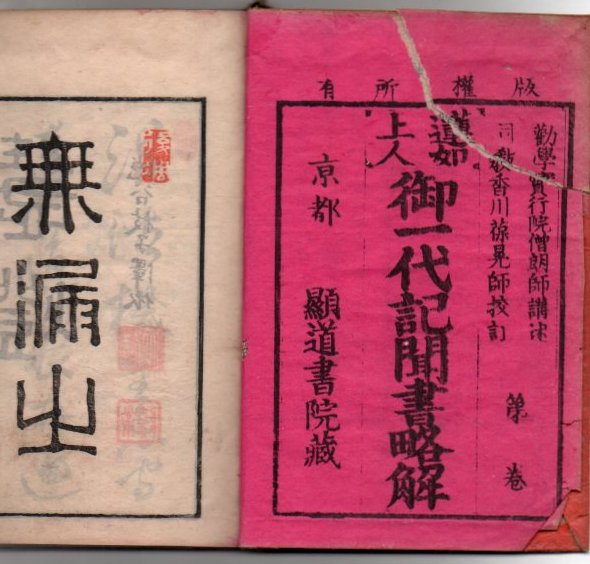 版權所有
勸學 行院僧朗師講述
司教香川葆晃師校訂
第 卷
蓮如上人
御一代記聞書略解
京都 顯道書院藏
無漏出